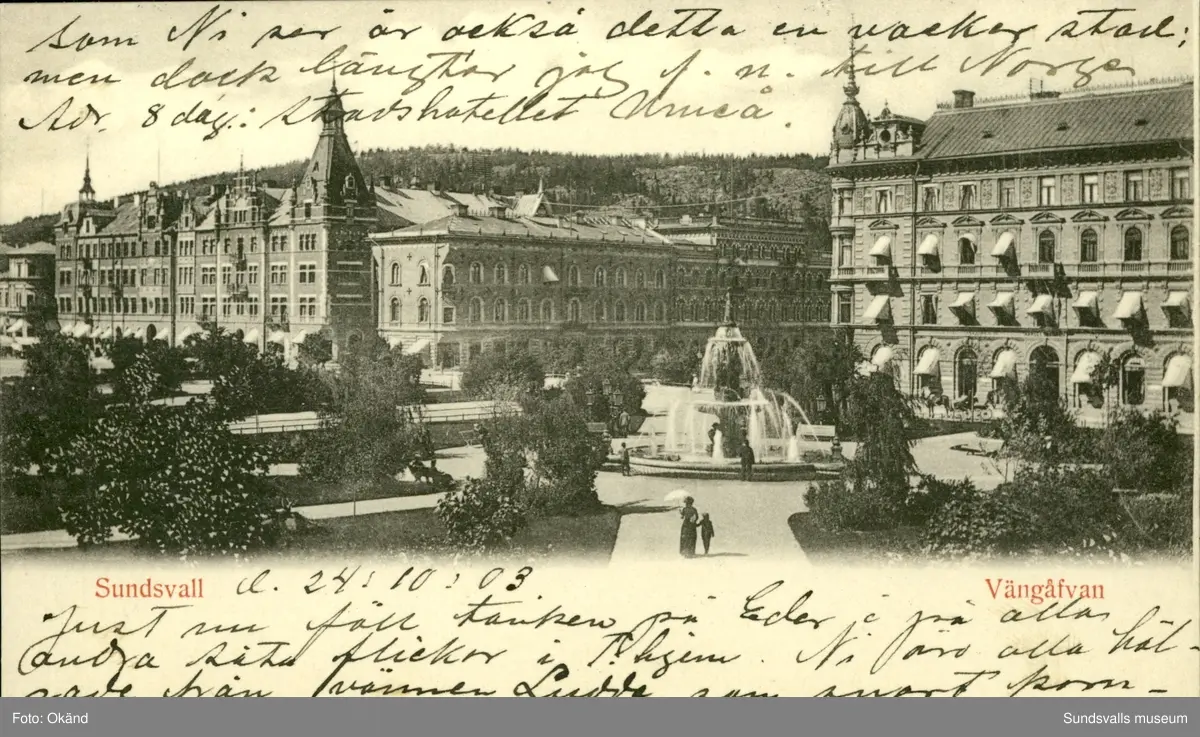 som Ni ser är också detta en vacker stad;
men dock längtar jag t. n. till Norge
Adr. 8 dag.: Stadshotellet Umeå.
Sundsvall d. 24:10:03 Vängåfvan
Just nu föll tanken på Eder å på alla
andra söta flickor i T.hjem. Ni äro alla häl-
sade från vännen Ludde som snart kom-
Foto: Okänd Sundsvalls museum